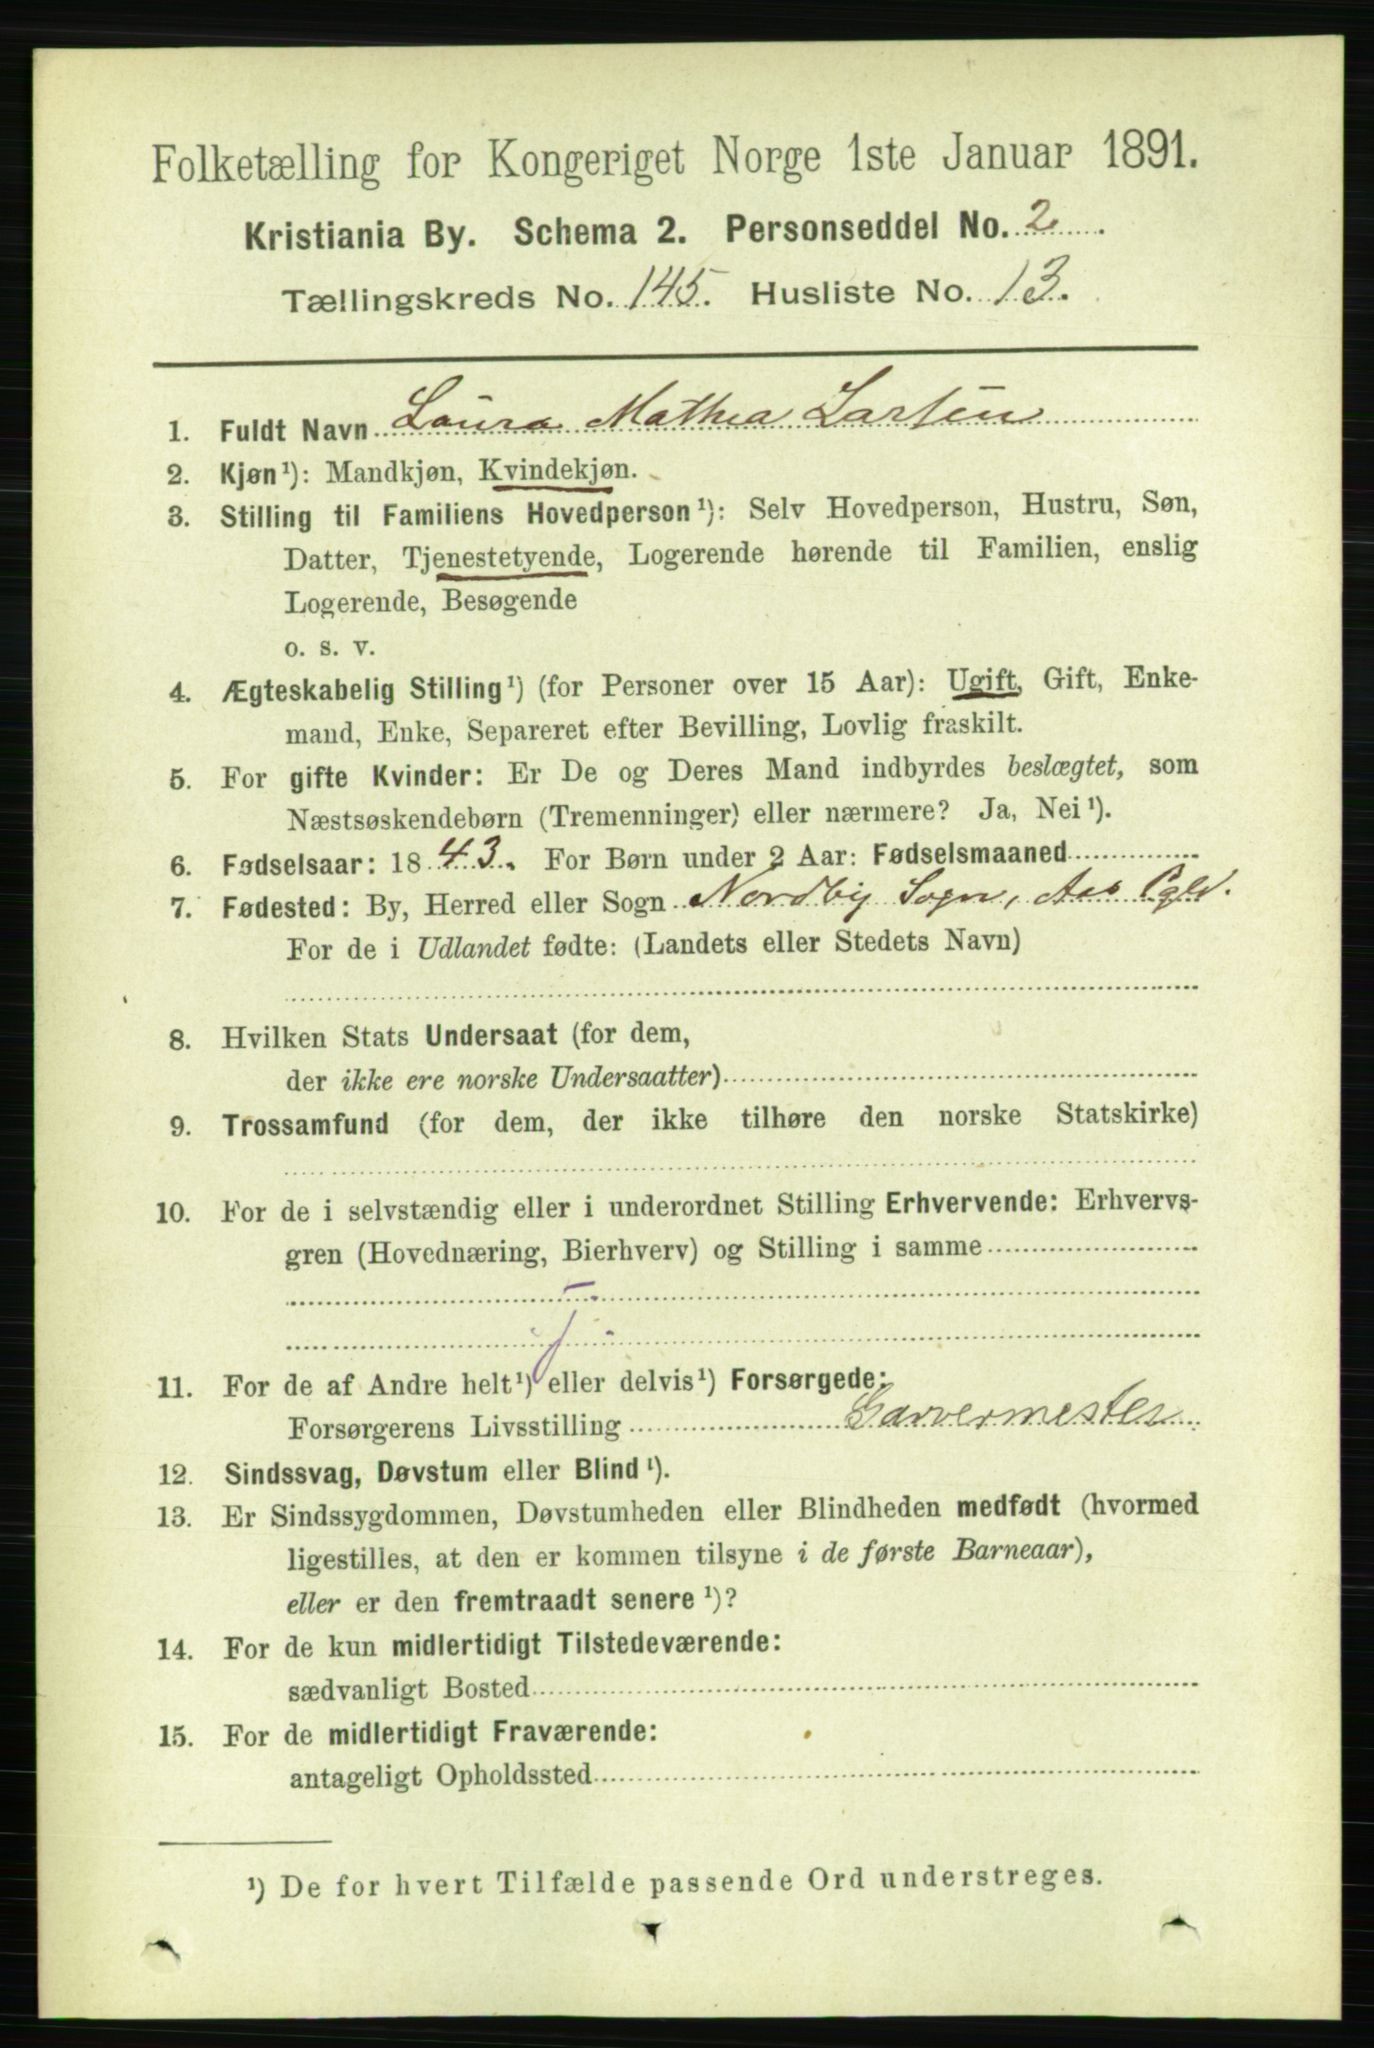 Folketælling for Kongeriget Norge 1ste Januar 1891.
Kristiania By. Schema 2. Personseddel No. 2
Tællingskreds No. 145. Husliste No. 13.
1. Fuldt Navn Laura Mathea Larsen
2. Kjøn¹): Mandkjøn, Kvindekjøn.
3. Stilling til Familiens Hovedperson¹): Selv Hovedperson, Hustru, Søn,
Datter, Tjenestetyende, Logerende hørende til Familien, enslig
Logerende, Besøgende
o. s. v.
4. Ægteskabelig Stilling¹) (for Personer over 15 Aar): Ugift, Gift, Enke-
mand, Enke, Separeret efter Bevilling, Lovlig fraskilt.
5. For gifte Kvinder: Er De og Deres Mand indbyrdes beslægtet, som
Næstsøskendebørn (Tremenninger) eller nærmere? Ja, Nei¹).
6. Fødselsaar: 1843. For Børn under 2 Aar: Fødselsmaaned
7. Fødested: By, Herred eller Sogn Nordby Sogn, Aas Pgld.
For de i Udlandet fødte: (Landets eller Stedets Navn)
8. Hvilken Stats Undersaat (for dem,
der ikke ere norske Undersaatter)
9. Trossamfund (for dem, der ikke tilhøre den norske Statskirke)
10. For de i selvstændig eller i underordnet Stilling Erhvervende: Erhvervs-
gren (Hovednæring, Bierhverv) og Stilling i samme
11. For de af Andre helt¹) eller delvis¹) Forsørgede:
Forsørgerens Livsstilling Garvermester
12. Sindssvag, Døvstum eller Blind¹).
13. Er Sindssygdommen, Døvstumheden eller Blindheden medfødt (hvormed
ligestilles, at den er kommen tilsyne i de første Barneaar),
eller er den fremtraadt senere¹)?
14. For de kun midlertidigt Tilstedeværende:
sædvanligt Bosted
15. For de midlertidigt Fraværende:
antageligt Opholdssted
¹) De for hvert Tilfælde passende Ord understreges.